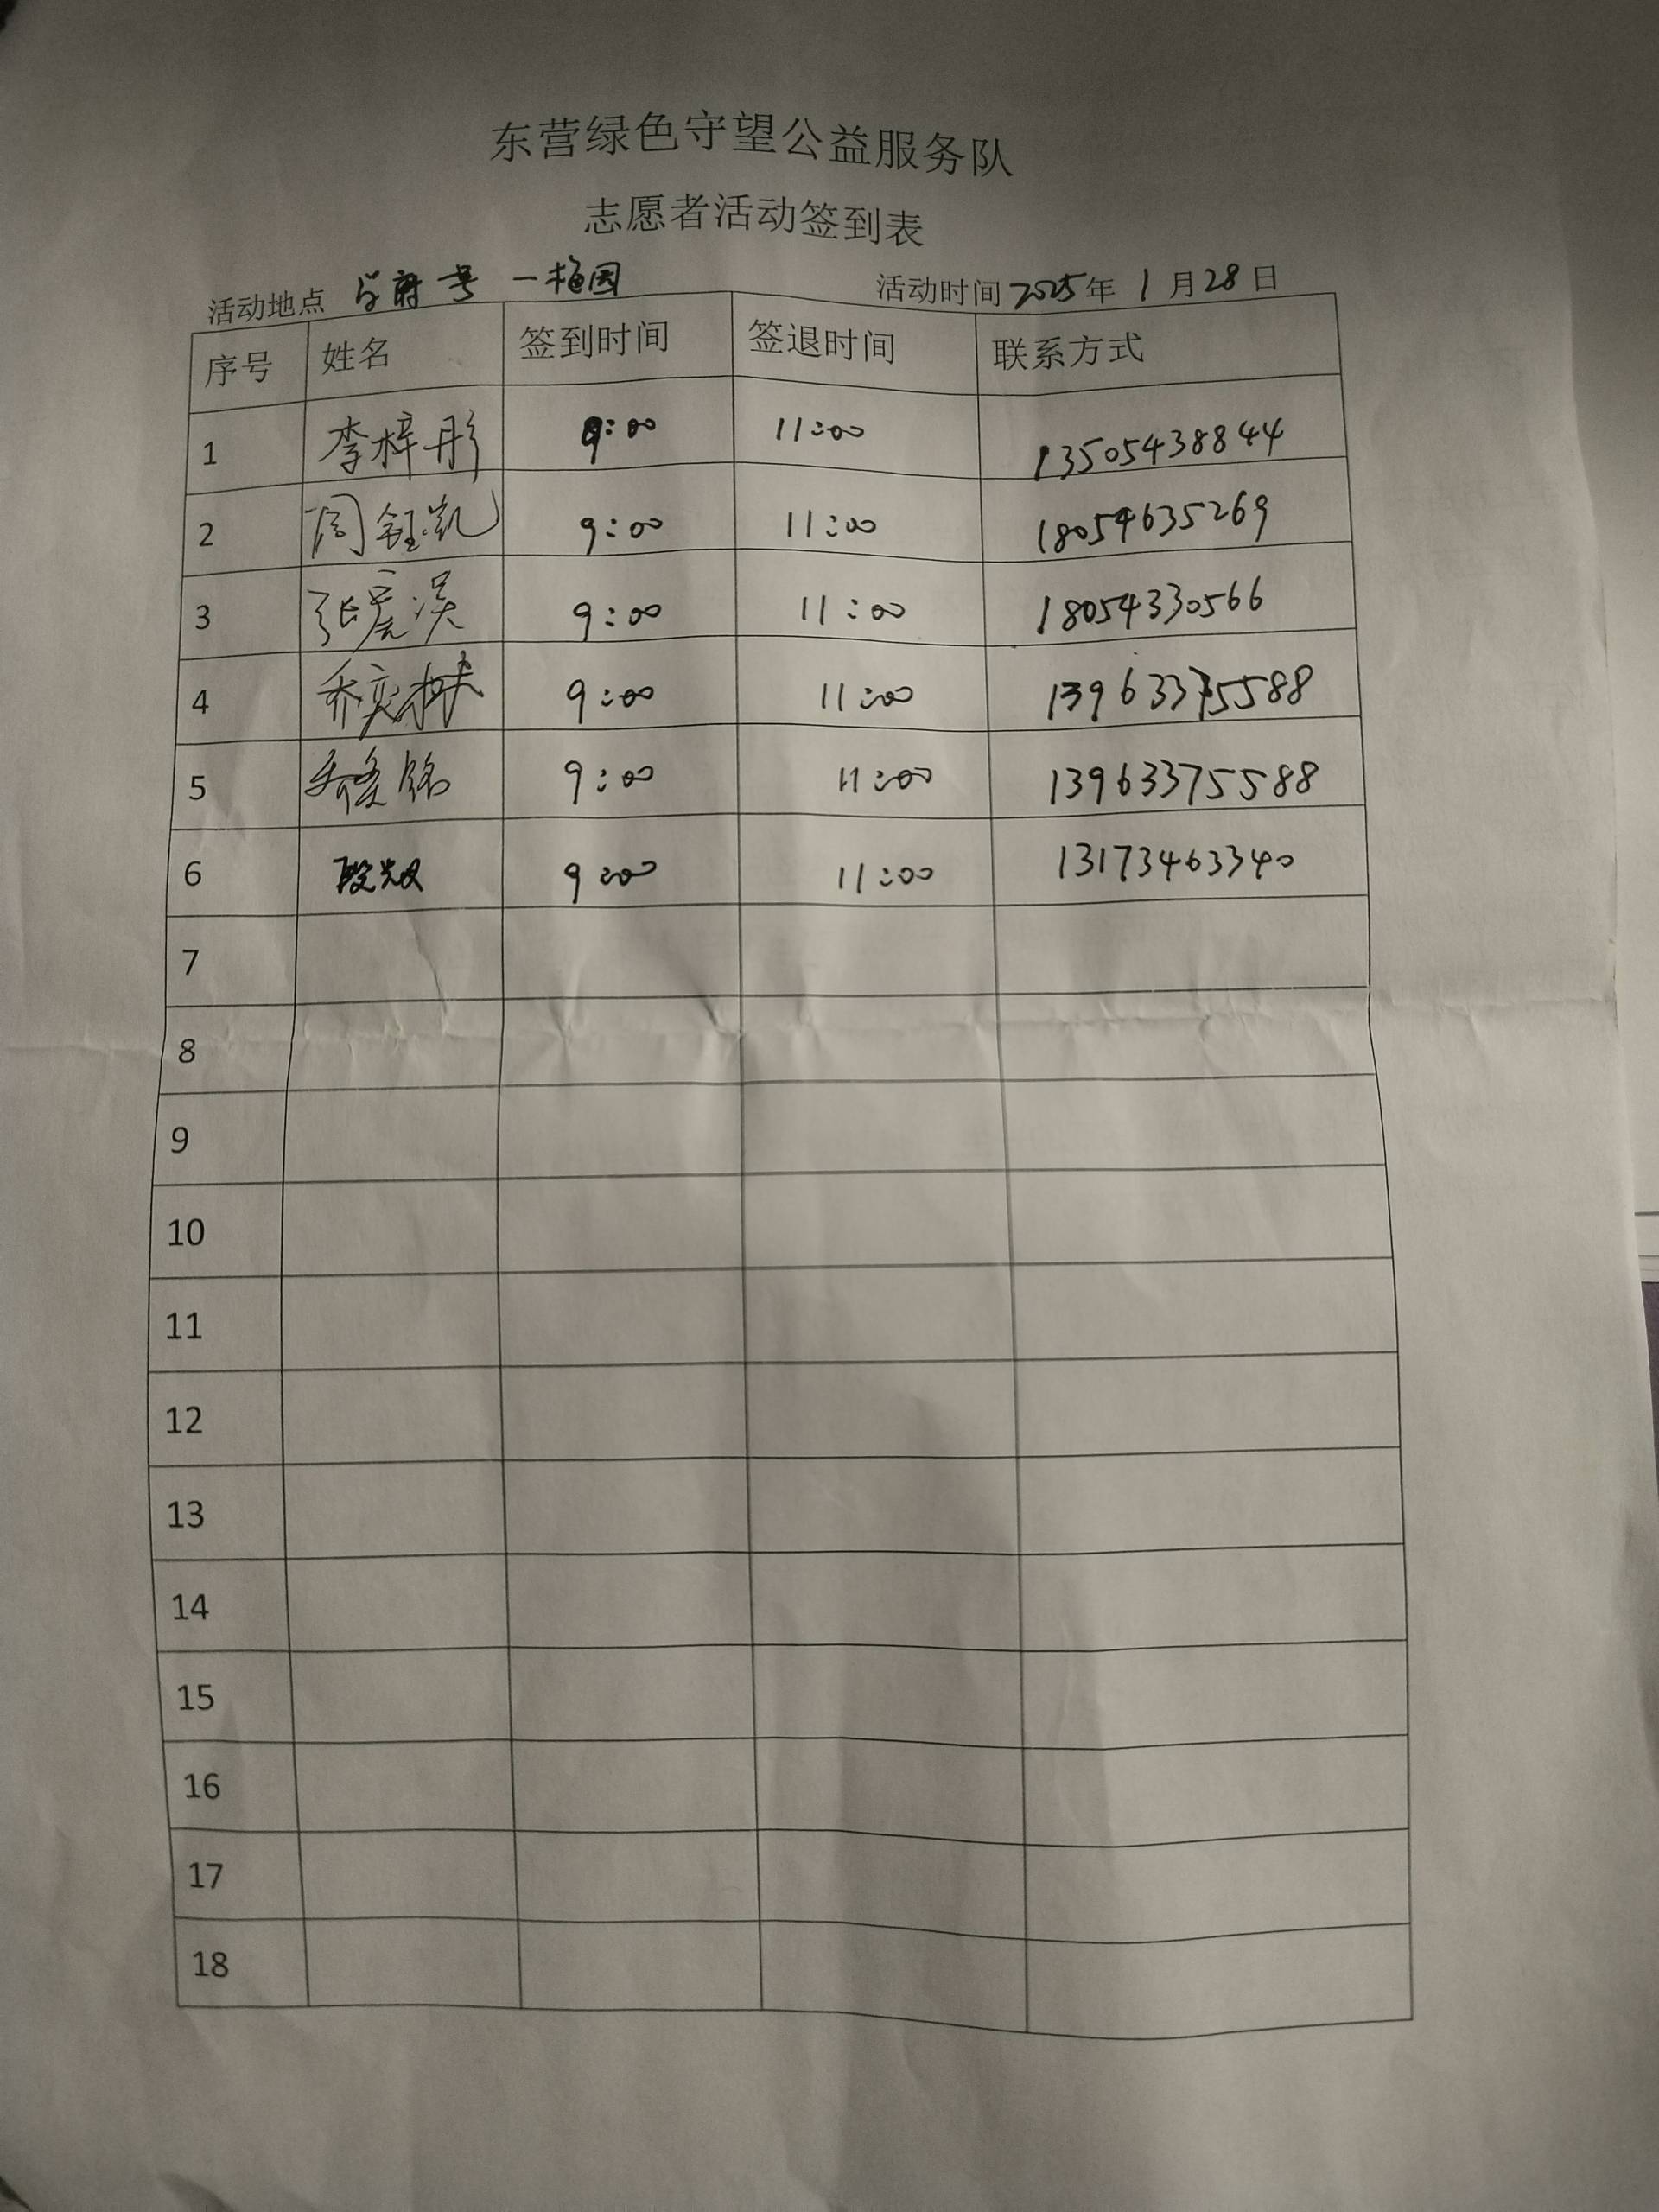 东营绿色守望公益服务队
志愿者活动签到表
活动地点 号 一梅园 活动时间 2025年 1月28日
序号 姓名 签到时间 签退时间 联系方式
1 李梓彤 9:00 11:00 13505438844
2 周钰凯 9:00 11:00 18054635269
3 张 9:00 11:00 18054330566
4 乔奕林 9:00 11:00 13963375588
5 乔 铭 9:00 11:00 13963375588
6 9:00 11:00 13173463340
7
8
9
10
11
12
13
14
15
16
17
18